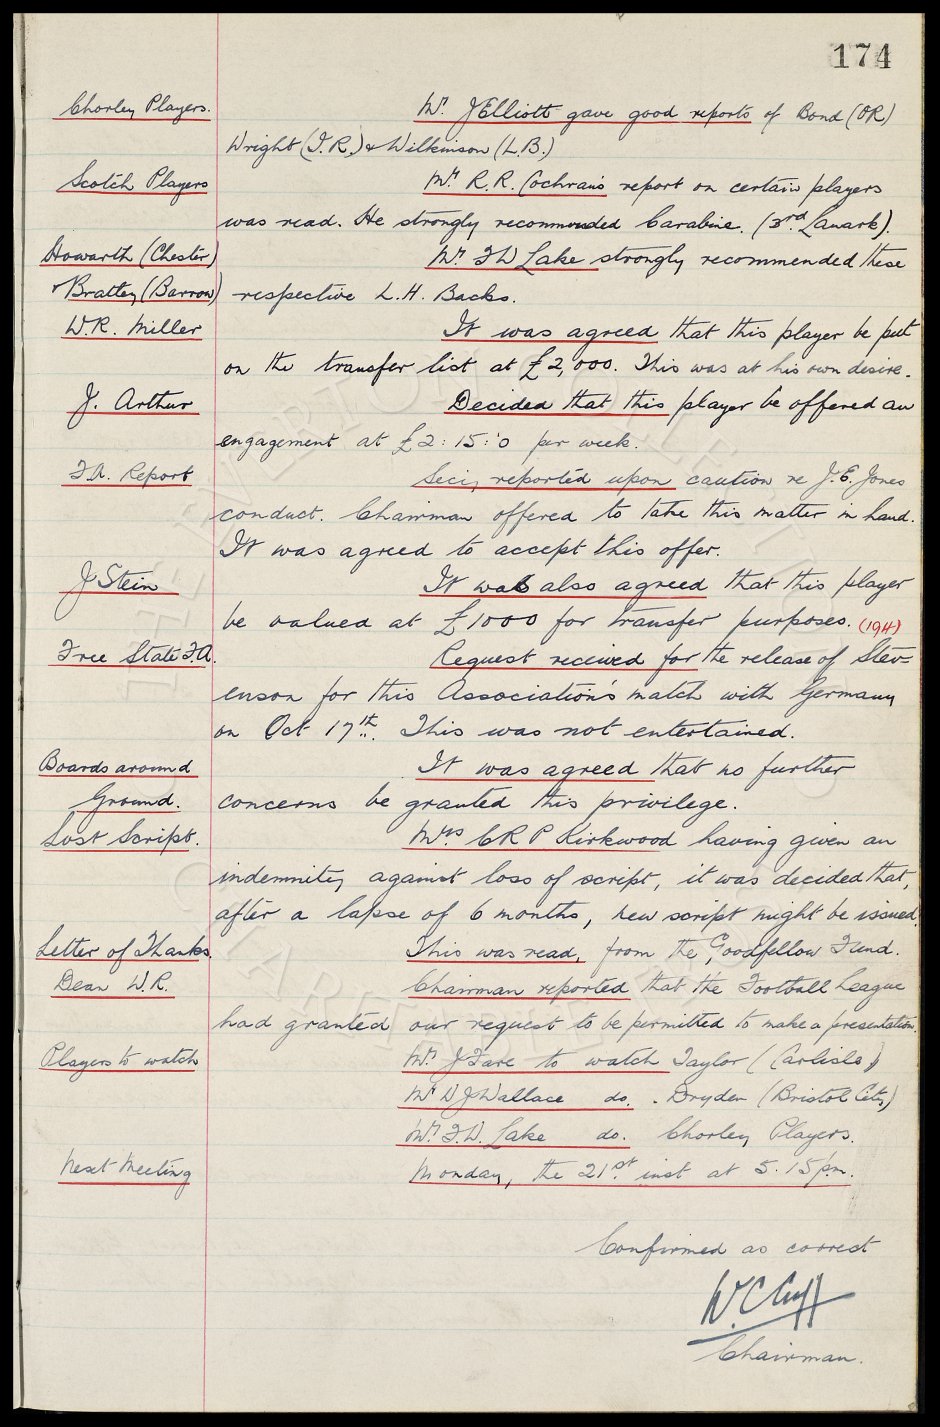 174
Chorley Players. Mr. J Elliott gave good reports of Bond (O R)
Wright (I.R.) & Wilkinson (L.B.)
Scotch Players Mr. R.R. Cochran's report on certain players
was read. He strongly recommended Carabine. (3rd. Lanark).
Howarth (Chester) Mr. F W Lake strongly recommended these
& Brattey (Barrow) respective L.H. Backs.
W.R. Miller It was agreed that this player be put
on the transfer list at £2,000. This was at his own desire.
J. Arthur Decided that this player be offered an
engagement at £2:15:0 per week.
F.A. Report Secy. reported upon caution re J.E. Jones
conduct. Chairman offered to take this matter in hand.
It was agreed to accept this offer.
J Stein It was also agreed that this player
be valued at £1000 for transfer purposes. (194)
Free State F.A. Request received for the release of Stev=
enson for this Association's match with Germany
on Oct 17th. This was not entertained.
Boards around It was agreed that no further
Ground. concerns be granted this privilege.
Lost Script. Mrs C R P Kirkwood having given an
indemnity against loss of script, it was decided that,
after a lapse of 6 months, new script might be issued.
Letter of Thanks. This was read, from the Goodfellow Fund.
Dean W.R. Chairman reported that the Football League
had granted our request to be permitted to make a presentation.
Players to watch Mr. J Fare to watch Taylor (Carlisle)
Mr W J Wallace do. . Dryden (Bristol City)
Mr. F.W. Lake do. Chorley Players.
Next Meeting Monday, the 21st. inst at 5.15 p.m.
Confirmed as correct
W.C. Cuff
Chairman.
THE EVERTON COLLECTION
CHARITABLE TRUST